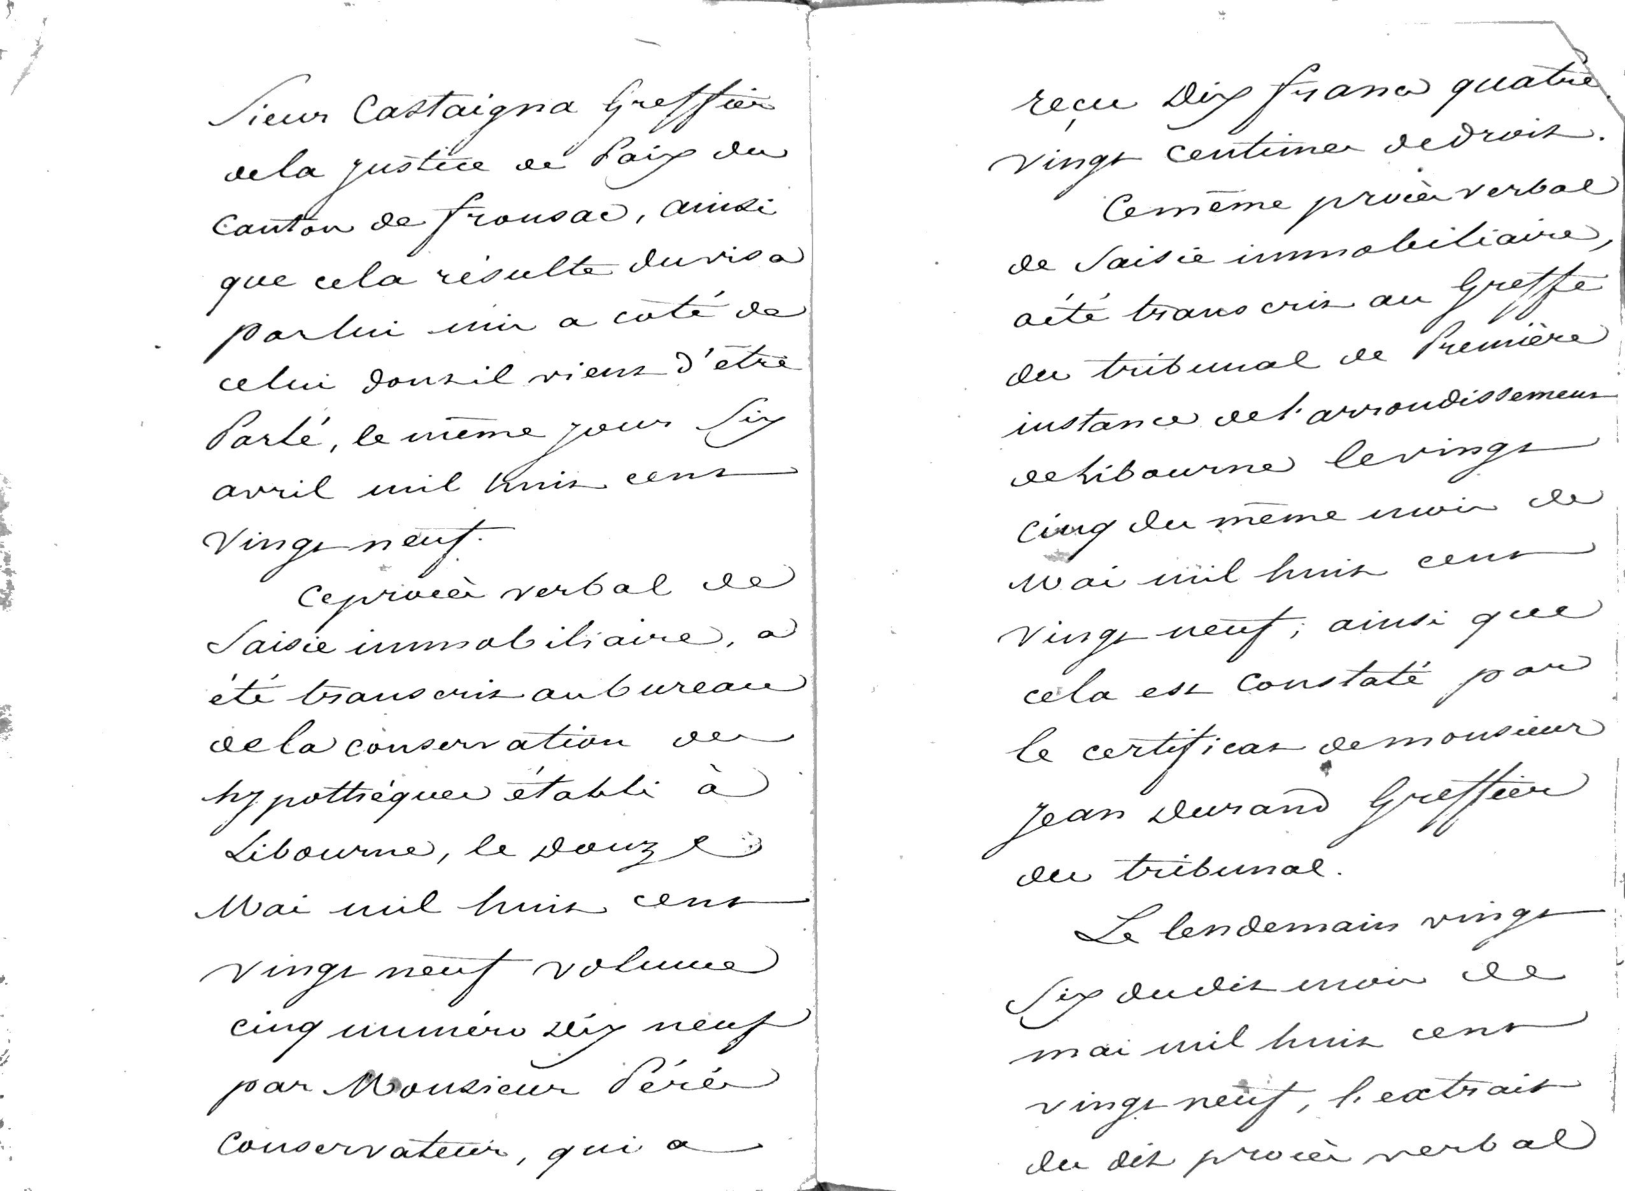 Sieur Castaigna Greffier
de la justice de Paix du
Canton de fronsac, ainsi
que cela résulte du visa
par lui mis a coté de
celui dont il vient d'être
Parlé, le même jour Six
avril mil huit cent
Vingt neuf.
Ce procès verbal de
Saisie immobiliaire, a
été transcrit au bureau
de la conservation des
hypothéques établi à
Libourne, le douze
Mai mil huit cent
vingt neuf volume
cinq numéro dix neuf
par Monsieur Pérés
Conservateur, qui a
reçu dix francs quatre
vingt centimes de droit.
Ce même procès verbal
de Saisie immobiliaire,
a été transcrit au Greffe
du tribunal de Première
instance de l'arrondissement
de Libourne le vingt
cinq du même mois de
Mai mil huit cent
vingt neuf; ainsi que
cela est constaté par
le certificat de monsieur
Jean Durand Greffier
du tribunal.
Le lendemain vingt
Six du dit mois de
mai mil huit cent
vingt neuf, l'extrait
du dit procès verbal